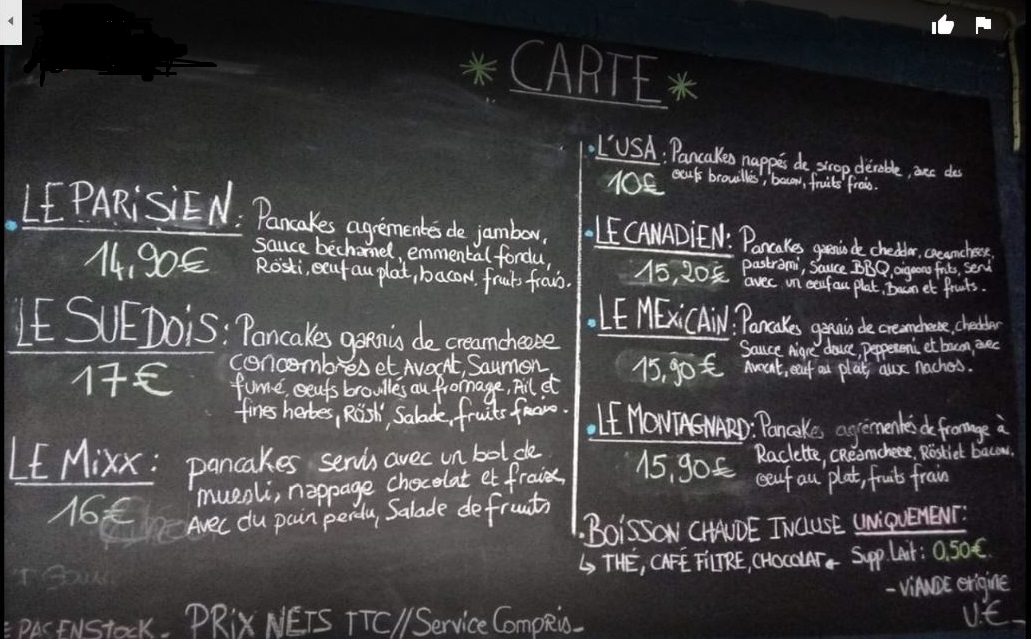 CARTE
LE PARiSiEN: Pancakes agrémentés de jambon,
14,90€ sauce béchamel, emmental fondu,
Rösti, œuf au plat, bacon, fruits frais.
LE SUEDOiS: Pancakes garnis de creamcheese
17€ concombres et Avocat, Saumon
fumé, œufs brouillés au fromage, Ail et
fines herbes, Rösti, Salade, fruits frais.
LE MiXX: pancakes servis avec un bol de
16€ muesli, nappage chocolat et fraise,
Avec du pain perdu, Salade de fruits
L'USA: Pancakes nappés de sirop d'érable, avec des
10€ œufs brouillés, bacon, fruits frais.
LE CANADIEN: Pancakes garnis de cheddar, creamcheese,
15,20€ pastrami, Sauce BBQ, oignons frits, Servi
avec un œuf au plat, Bacon et fruits.
LE MEXiCAiN: Pancakes garnis de creamcheese, cheddar
Sauce Aigre douce, Pepperoni et bacon, avec
15,90€ Avocat, œuf au plat, aux nachos.
LE MONTAGNARD: Pancakes agrémentés de fromage à
15,90€ Raclette, creamcheese, Rösti et bacon.
œuf au plat, fruits frais
BOiSSON CHAUDE INCLUSE UNiQUEMENT:
↳ THÉ, CAFÉ FiLTRE, CHOCOLAT Supp. Lait: 0,50€
- ViANDE origine
U.E_
PRiX NETS TTC // Service Compris_